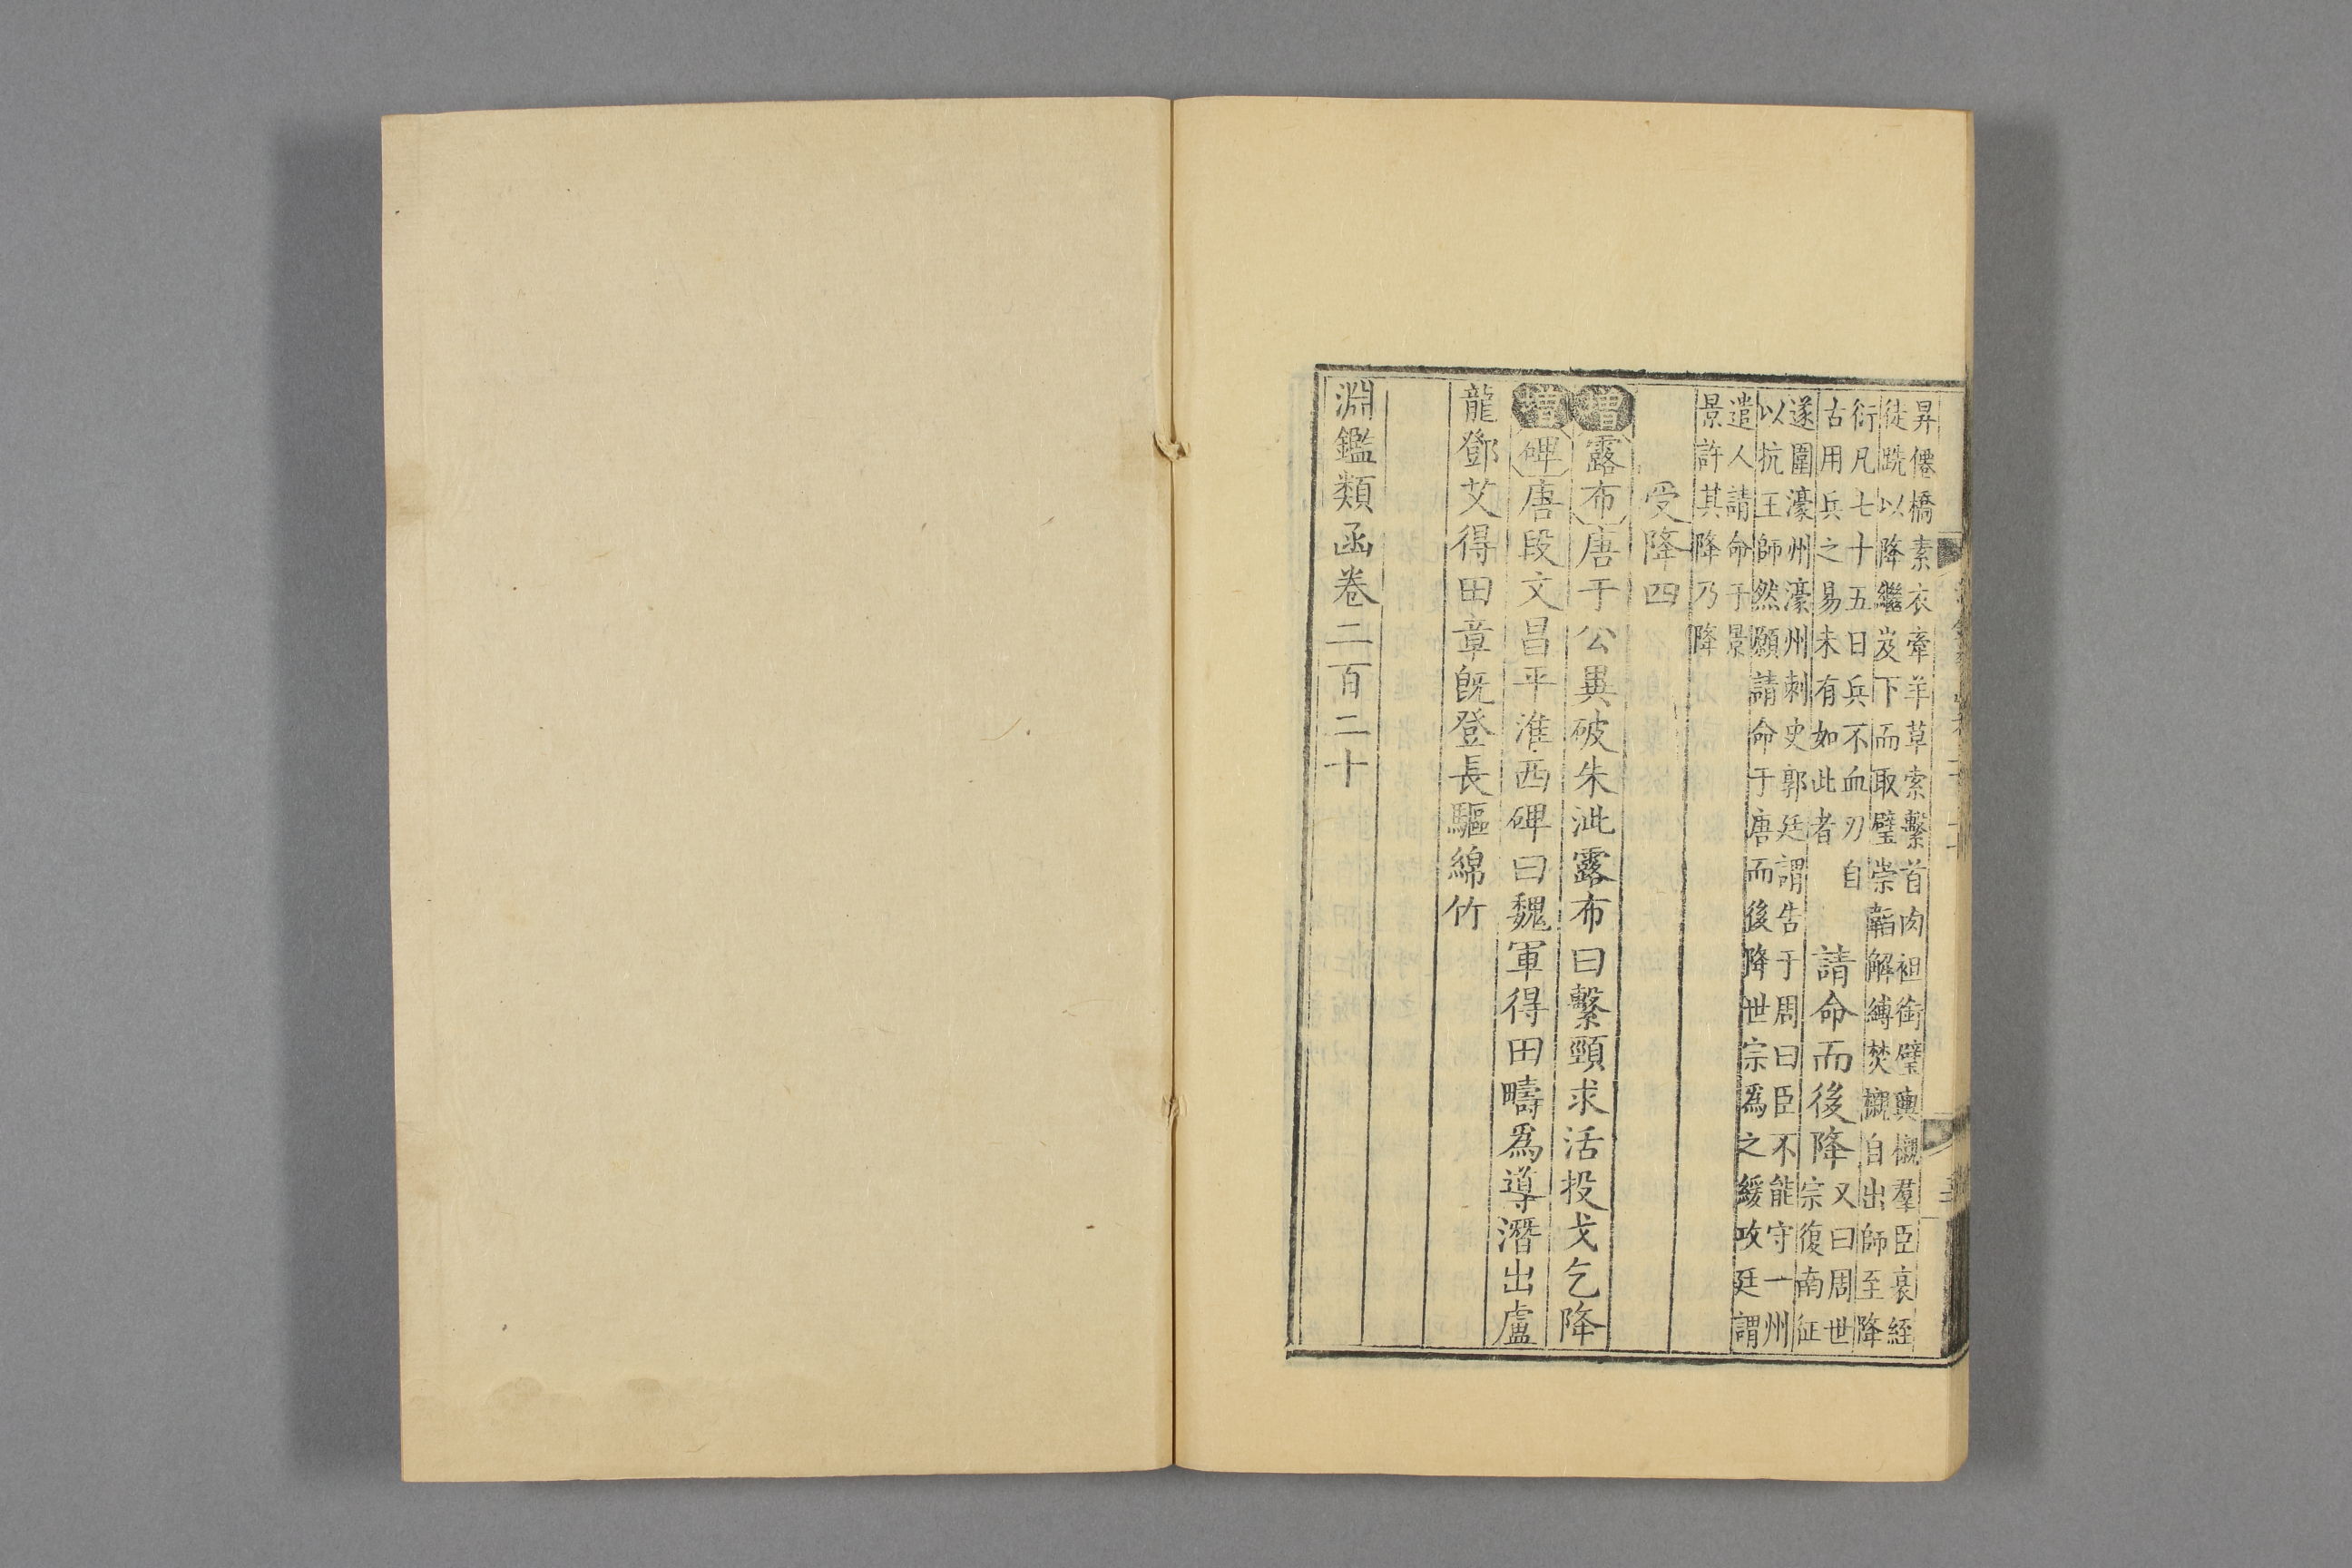 昇僊橋素衣牽羊草索繫首肉袒銜璧輿櫬羣臣衰絰
徒跣以降繼岌下而取璧崇韜解縛焚櫬自出師至降
衍凡七十五日兵不血刃自
古用兵之易未有如此者
請命而後降
又曰周世
宗復南征
遂圍濠州濠州刺史郭廷謂告于周曰臣不能守一州
以抗王師然願請命于唐而後降世宗爲之緩攻廷謂
遣人請命于景
景許其降乃降
受降四
增露布唐于公異破朱泚露布曰繫頸求活投戈乞降
增碑唐段文昌平淮西碑曰魏軍得田疇爲導潛出盧
龍鄧艾得田章旣登長驅綿竹
淵鑑類函卷二百二十